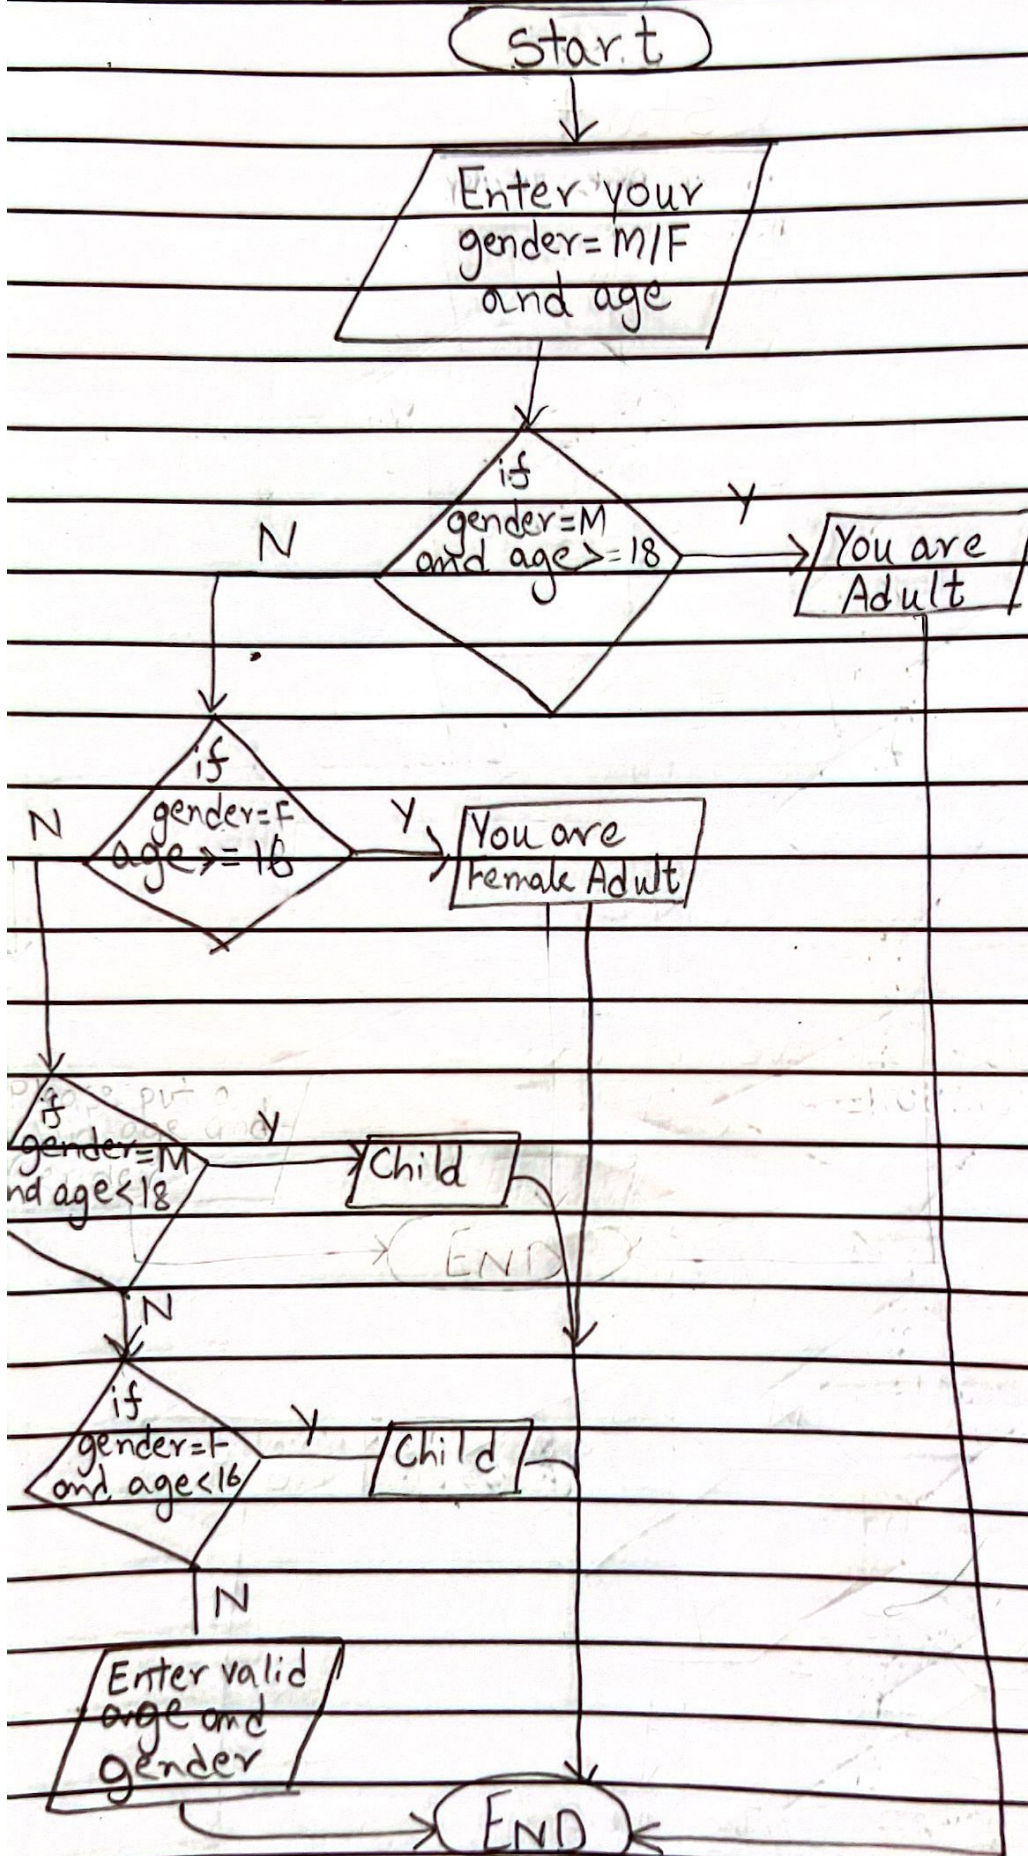 Start
Enter your
gender=M/F
and age
if
gender=M
and age>=18
Y
N
You are
Adult
if
gender=F
age>=16
Y
N
You are
Female Adult
if
gender=M
nd age<18
Y
Child
END
N
if
gender=F
and age<16
Y
Child
N
Enter valid
age and
gender
END